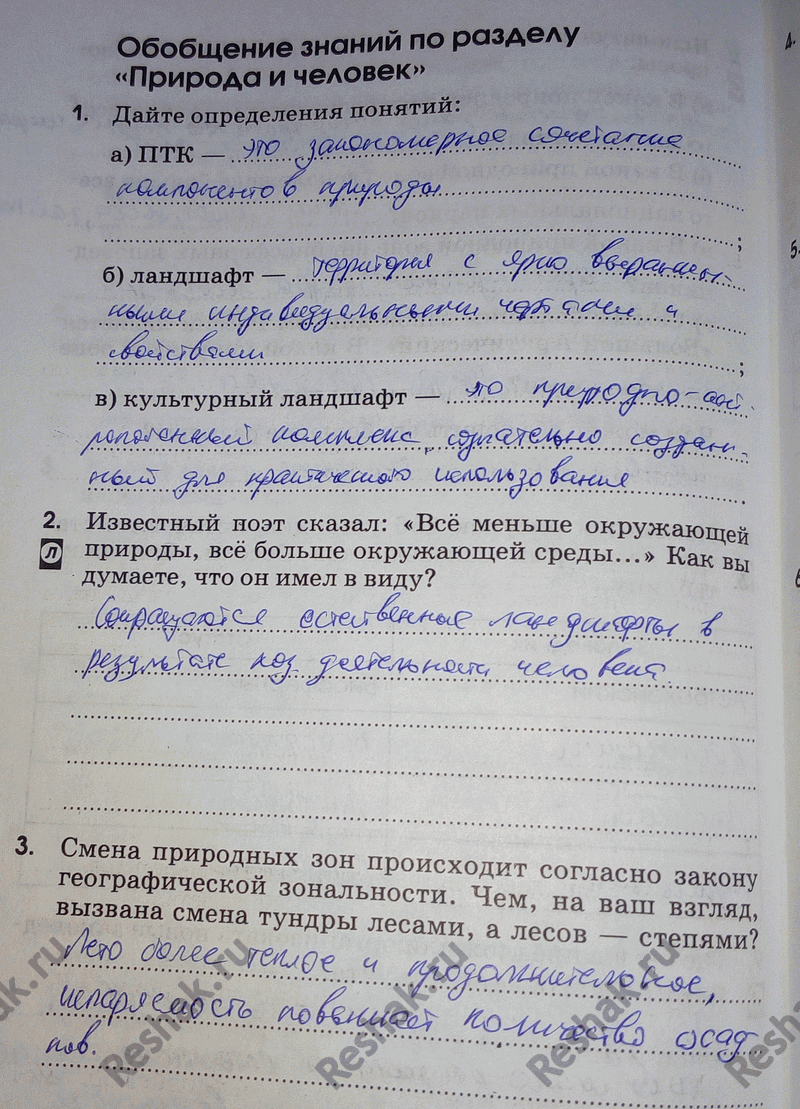 Обобщение знаний по разделу
«Природа и человек»
1. Дайте определения понятий:
а) ПТК — это закономерное сочетание
компонентов природы
;
б) ландшафт — территория с ярко выражен-
ными индивидуальными чертами и
свойствами
;
в) культурный ландшафт — это природно-ант
ропогенный комплекс, сознательно создан-
ный для практического использования
.
2. Известный поэт сказал: «Всё меньше окружающей
Л природы, всё больше окружающей среды...» Как вы
думаете, что он имел в виду?
Сокращаются естественные ландшафты в
результате хоз деятельности человека
3. Смена природных зон происходит согласно закону
географической зональности. Чем, на ваш взгляд,
вызвана смена тундры лесами, а лесов — степями?
Лето более теплое и продолжительное,
испаряемость повышает количество осад
ков.
Reshak.ru
Reshak.ru
Reshak.ru
Reshak.ru